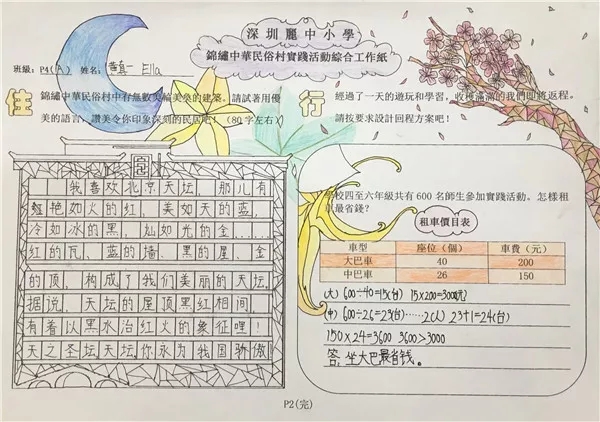 深圳麗中小學
錦繡中華民俗村實踐活動綜合工作紙
班級：P4(A) 姓名： Ella
住
錦繡中華民俗村中有無數美輪美奐的建築。請試著用優
美的語言，讚美令你印象深刻的民居吧！（80字左右）
我喜欢北京天坛，那儿有
艳如火的红，美如天的蓝，
冷如冰的黑，灿如光的金……
红的瓦、蓝的墙、黑的屋、金
的顶，构成了我们美丽的天坛。
据说，天坛的屋顶黑红相间，
有着以黑水治红火的象征哩！
天之圣坛天坛，你永为我国骄傲！
行
經過了一天的遊玩和學習，收穫滿滿的我們即將返程。
請按要求設計回程方案吧！
學校四至六年級共有600名師生參加實踐活動。怎樣租
車最省錢？
租車價目表
車型 座位（個） 車費（元）
大巴車 40 200
中巴車 26 150
(大) 600÷40=15(台) 15×200=3000(元)
(中) 600÷26=23(台)……2(人) 23+1=24(台)
150×24=3600 3600>3000
答：坐大巴最省钱。
P2(完)